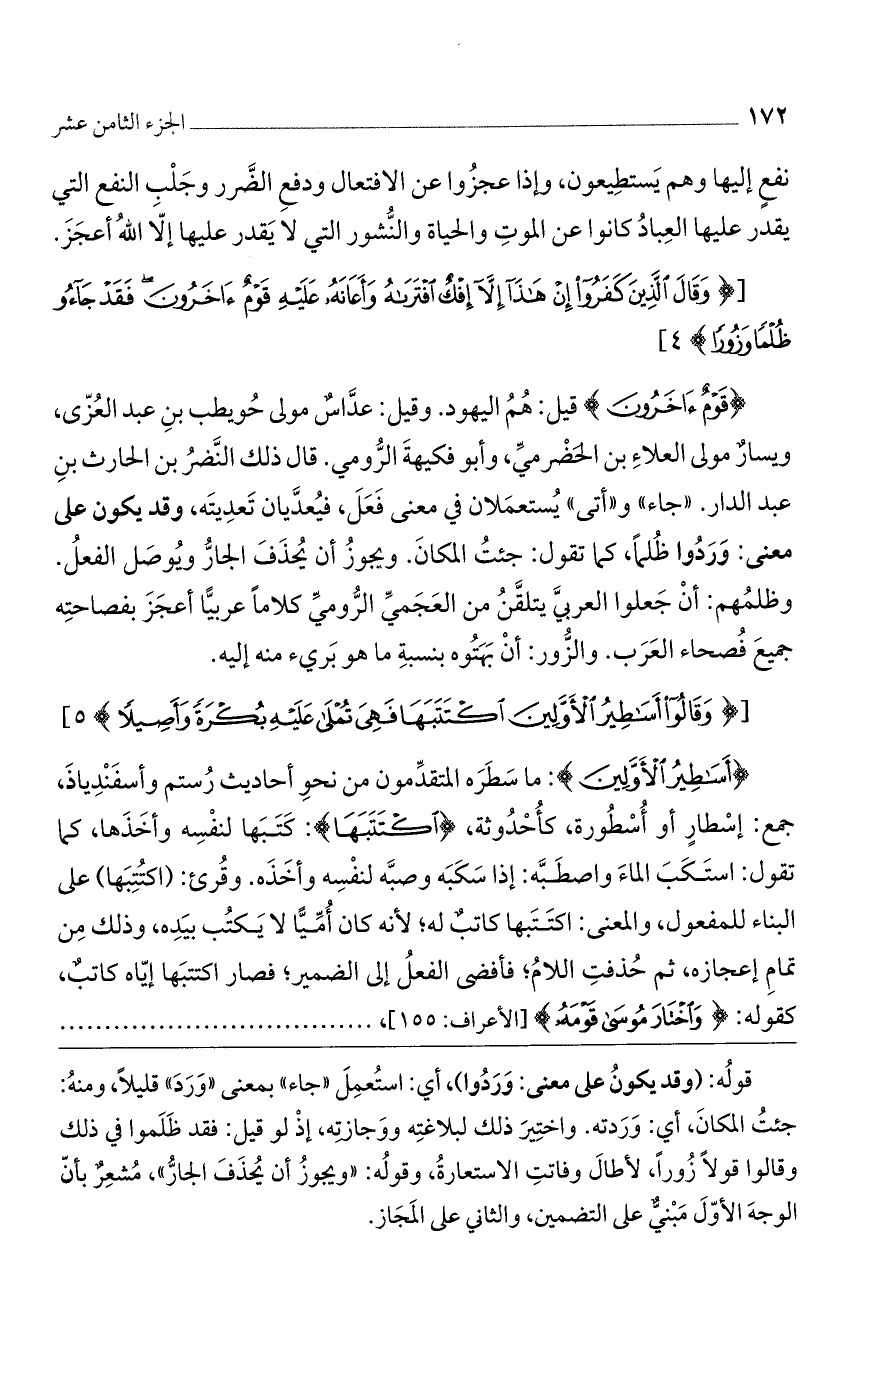 ١٧٢ ــــــــــــــــــــــــــــــ الجزء الثامن عشر
نفعٍ إليها وهم يَستطِيعون، وإذا عجزُوا عن الافتعال ودفعِ الضَّرر وجَلْبِ النفع التي
يقدر عليها العِبادُ كانوا عن الموتِ والحياة والنُّشور التي لا يَقدر عليها إلّا اللهُ أعجَزَ.
[﴿ وَقَالَ ٱلَّذِينَ كَفَرُوٓاْ إِنْ هَـٰذَآ إِلَّآ إِفْكٌ ٱفْتَرَىٰهُ وَأَعَانَهُۥ عَلَيْهِ قَوْمٌ ءَاخَرُونَ ۖ فَقَدْ جَآءُو
ظُلْمًا وَزُورًا ﴾ ٤]
﴿قَوْمٌ ءَاخَرُونَ ﴾ قيل: هُمُ اليهود. وقيل: عدَّاسٌ مولى حُويطب بنِ عبد العُزّى،
ويسارٌ مولى العلاءِ بن الحَضْرميِّ، وأبو فكيهةَ الرُّومي. قال ذلك النَّضرُ بن الحارث بنِ
عبد الدار. «جاء» و«أتى» يُستعمَلان في معنى فَعَلَ، فيُعدَّيان تَعدِيتَه، وقد يكون على
معنى: وَرَدُوا ظُلماً، كما تقول: جئتُ المكانَ. ويجوزُ أن يُحذَفَ الجارُّ ويُوصَل الفعلُ.
وظلمُهم: أنْ جَعلوا العربيَّ يتلقَّنُ من العَجَميِّ الرُّوميِّ كلاماً عربيًّا أعجَزَ بفصاحتِه
جميعَ فُصحاء العَرَب. والزُّور: أنْ بَهَتُوه بنسبةِ ما هو بَريء منه إليه.
[﴿ وَقَالُوٓاْ أَسَـٰطِيرُ ٱلْأَوَّلِينَ ٱكْتَتَبَهَا فَهِىَ تُمْلَىٰ عَلَيْهِ بُكْرَةً وَأَصِيلًا ﴾ ٥]
﴿أَسَـٰطِيرُ ٱلْأَوَّلِينَ ﴾: ما سَطَرَه المتقدِّمون من نحوِ أحاديث رُستم وأسفَنْدِياذَ،
جمع: إسْطارٍ أو أُسْطُورة، كأُحْدُوثة، ﴿ٱكْتَتَبَهَا﴾: كَتَبَها لنفْسِه وأخَذَها، كما
تقول: استَكَبَ الماءَ واصطَبَّه: إذا سَكَبَه وصبَّه لنفْسِه وأخَذَه. وقُرئ: (اكتُتِبَها) على
البناء للمفعول، والمعنى: اكتَتَبها كاتبٌ له؛ لأنه كان أُمِّيًّا لا يَكتُب بيَدِه، وذلك مِن
تمامِ إعجازِه، ثم حُذفتِ اللامُ؛ فأفضى الفعلُ إلى الضمير؛ فصار اكتتبَها إيّاه كاتبٌ،
كقوله: ﴿ وَٱخْتَارَ مُوسَىٰ قَوْمَهُۥ ﴾ [الأعراف: ١٥٥]، ...................................
قولُه: (وقد يكونُ على معنى: وَرَدُوا)، أي: استُعمِلَ «جاء» بمعنى «وَرَدَ» قليلاً، ومنهُ:
جئتُ المكانَ، أي: وَرَدته. واختِيرَ ذلك لبلاغتِه ووَجازتِه، إذْ لو قيل: فقد ظَلَموا في ذلك
وقالوا قولاً زُوراً، لأطالَ وفاتتِ الاستعارةُ، وقولُه: «ويجوزُ أن يُحذَفَ الجارُّ»، مُشعِرٌ بأنّ
الوجهَ الأوّلَ مَبْنيٌّ على التضمين، والثاني على المَجَاز.